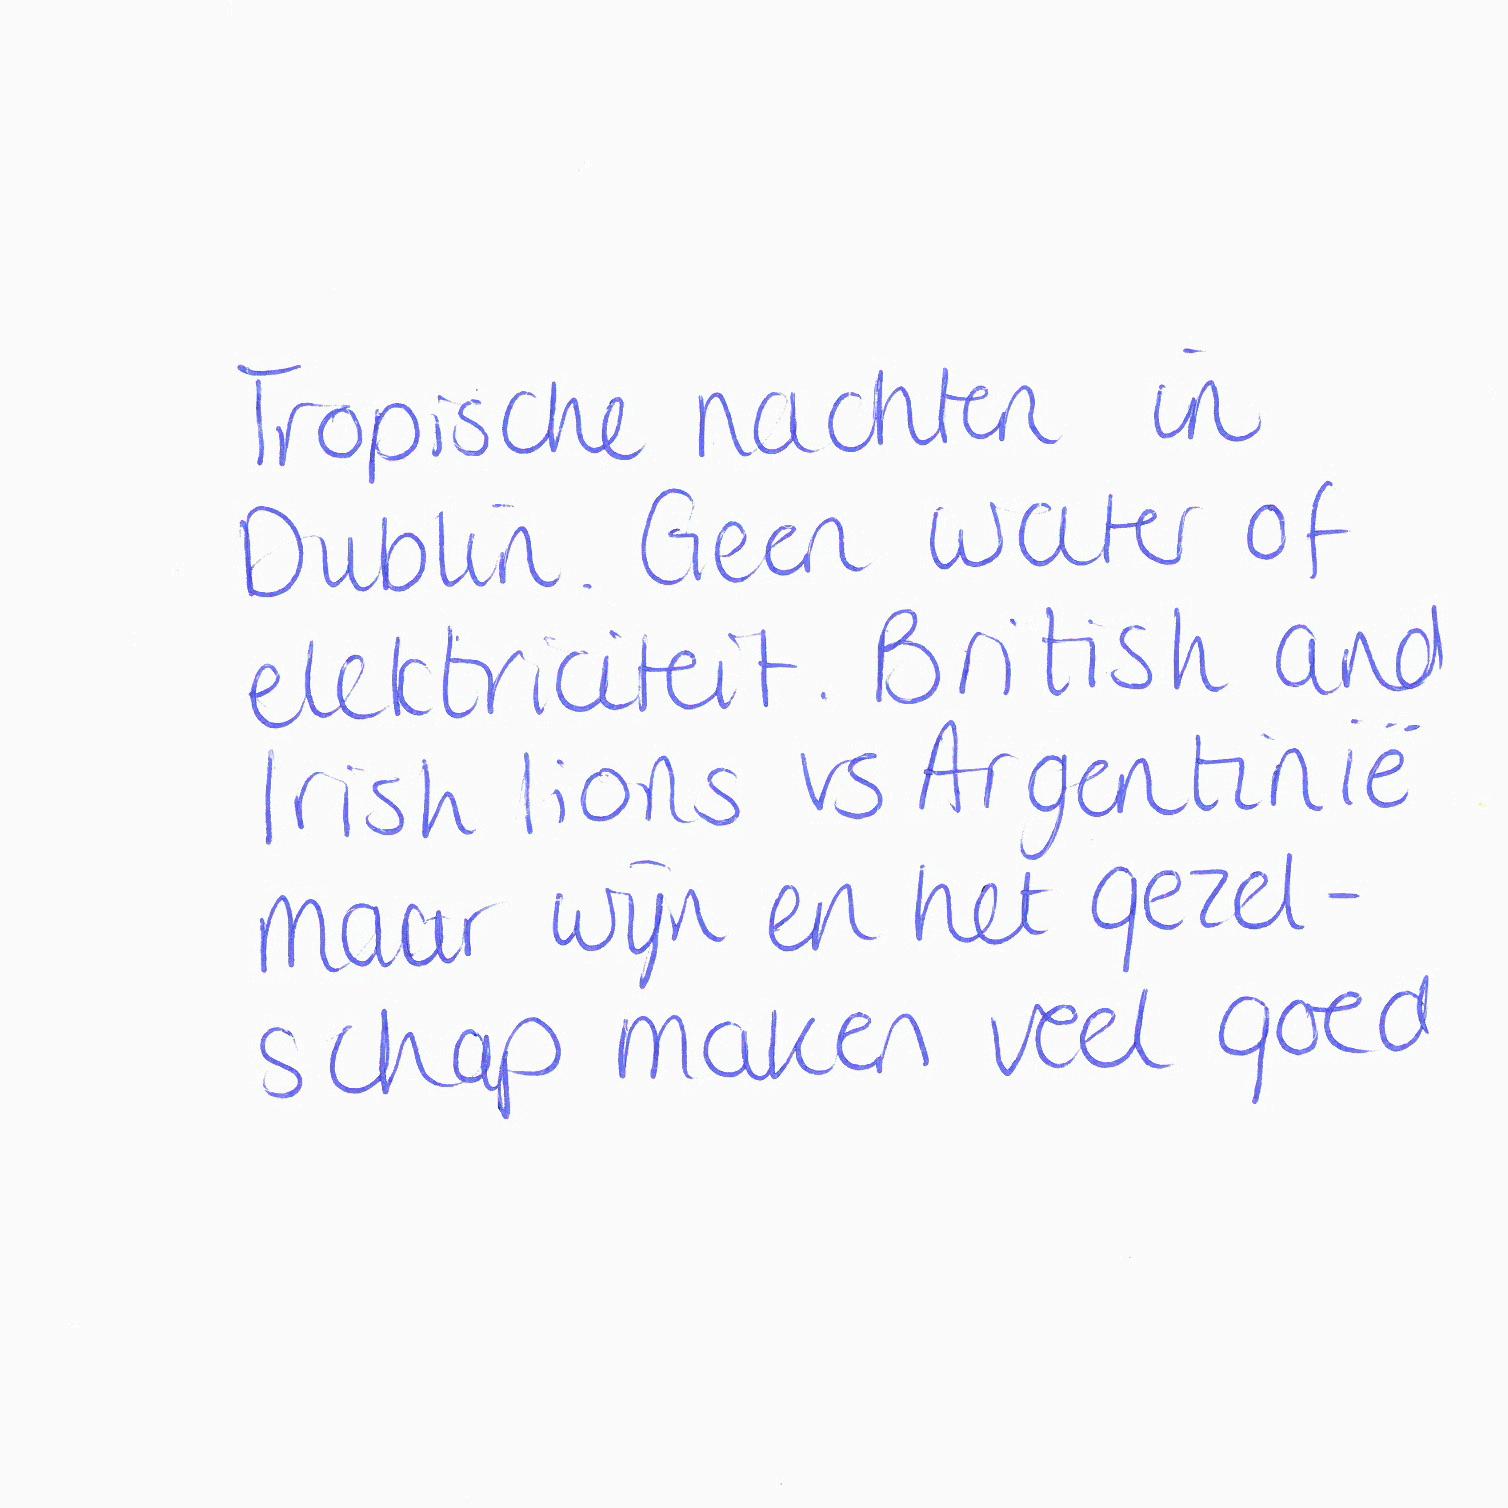 Tropische nachten in
Dublin. Geen water of
elektriciteit. British and
Irish lions vs Argentinië
maar wijn en het gezel-
schap maken veel goed